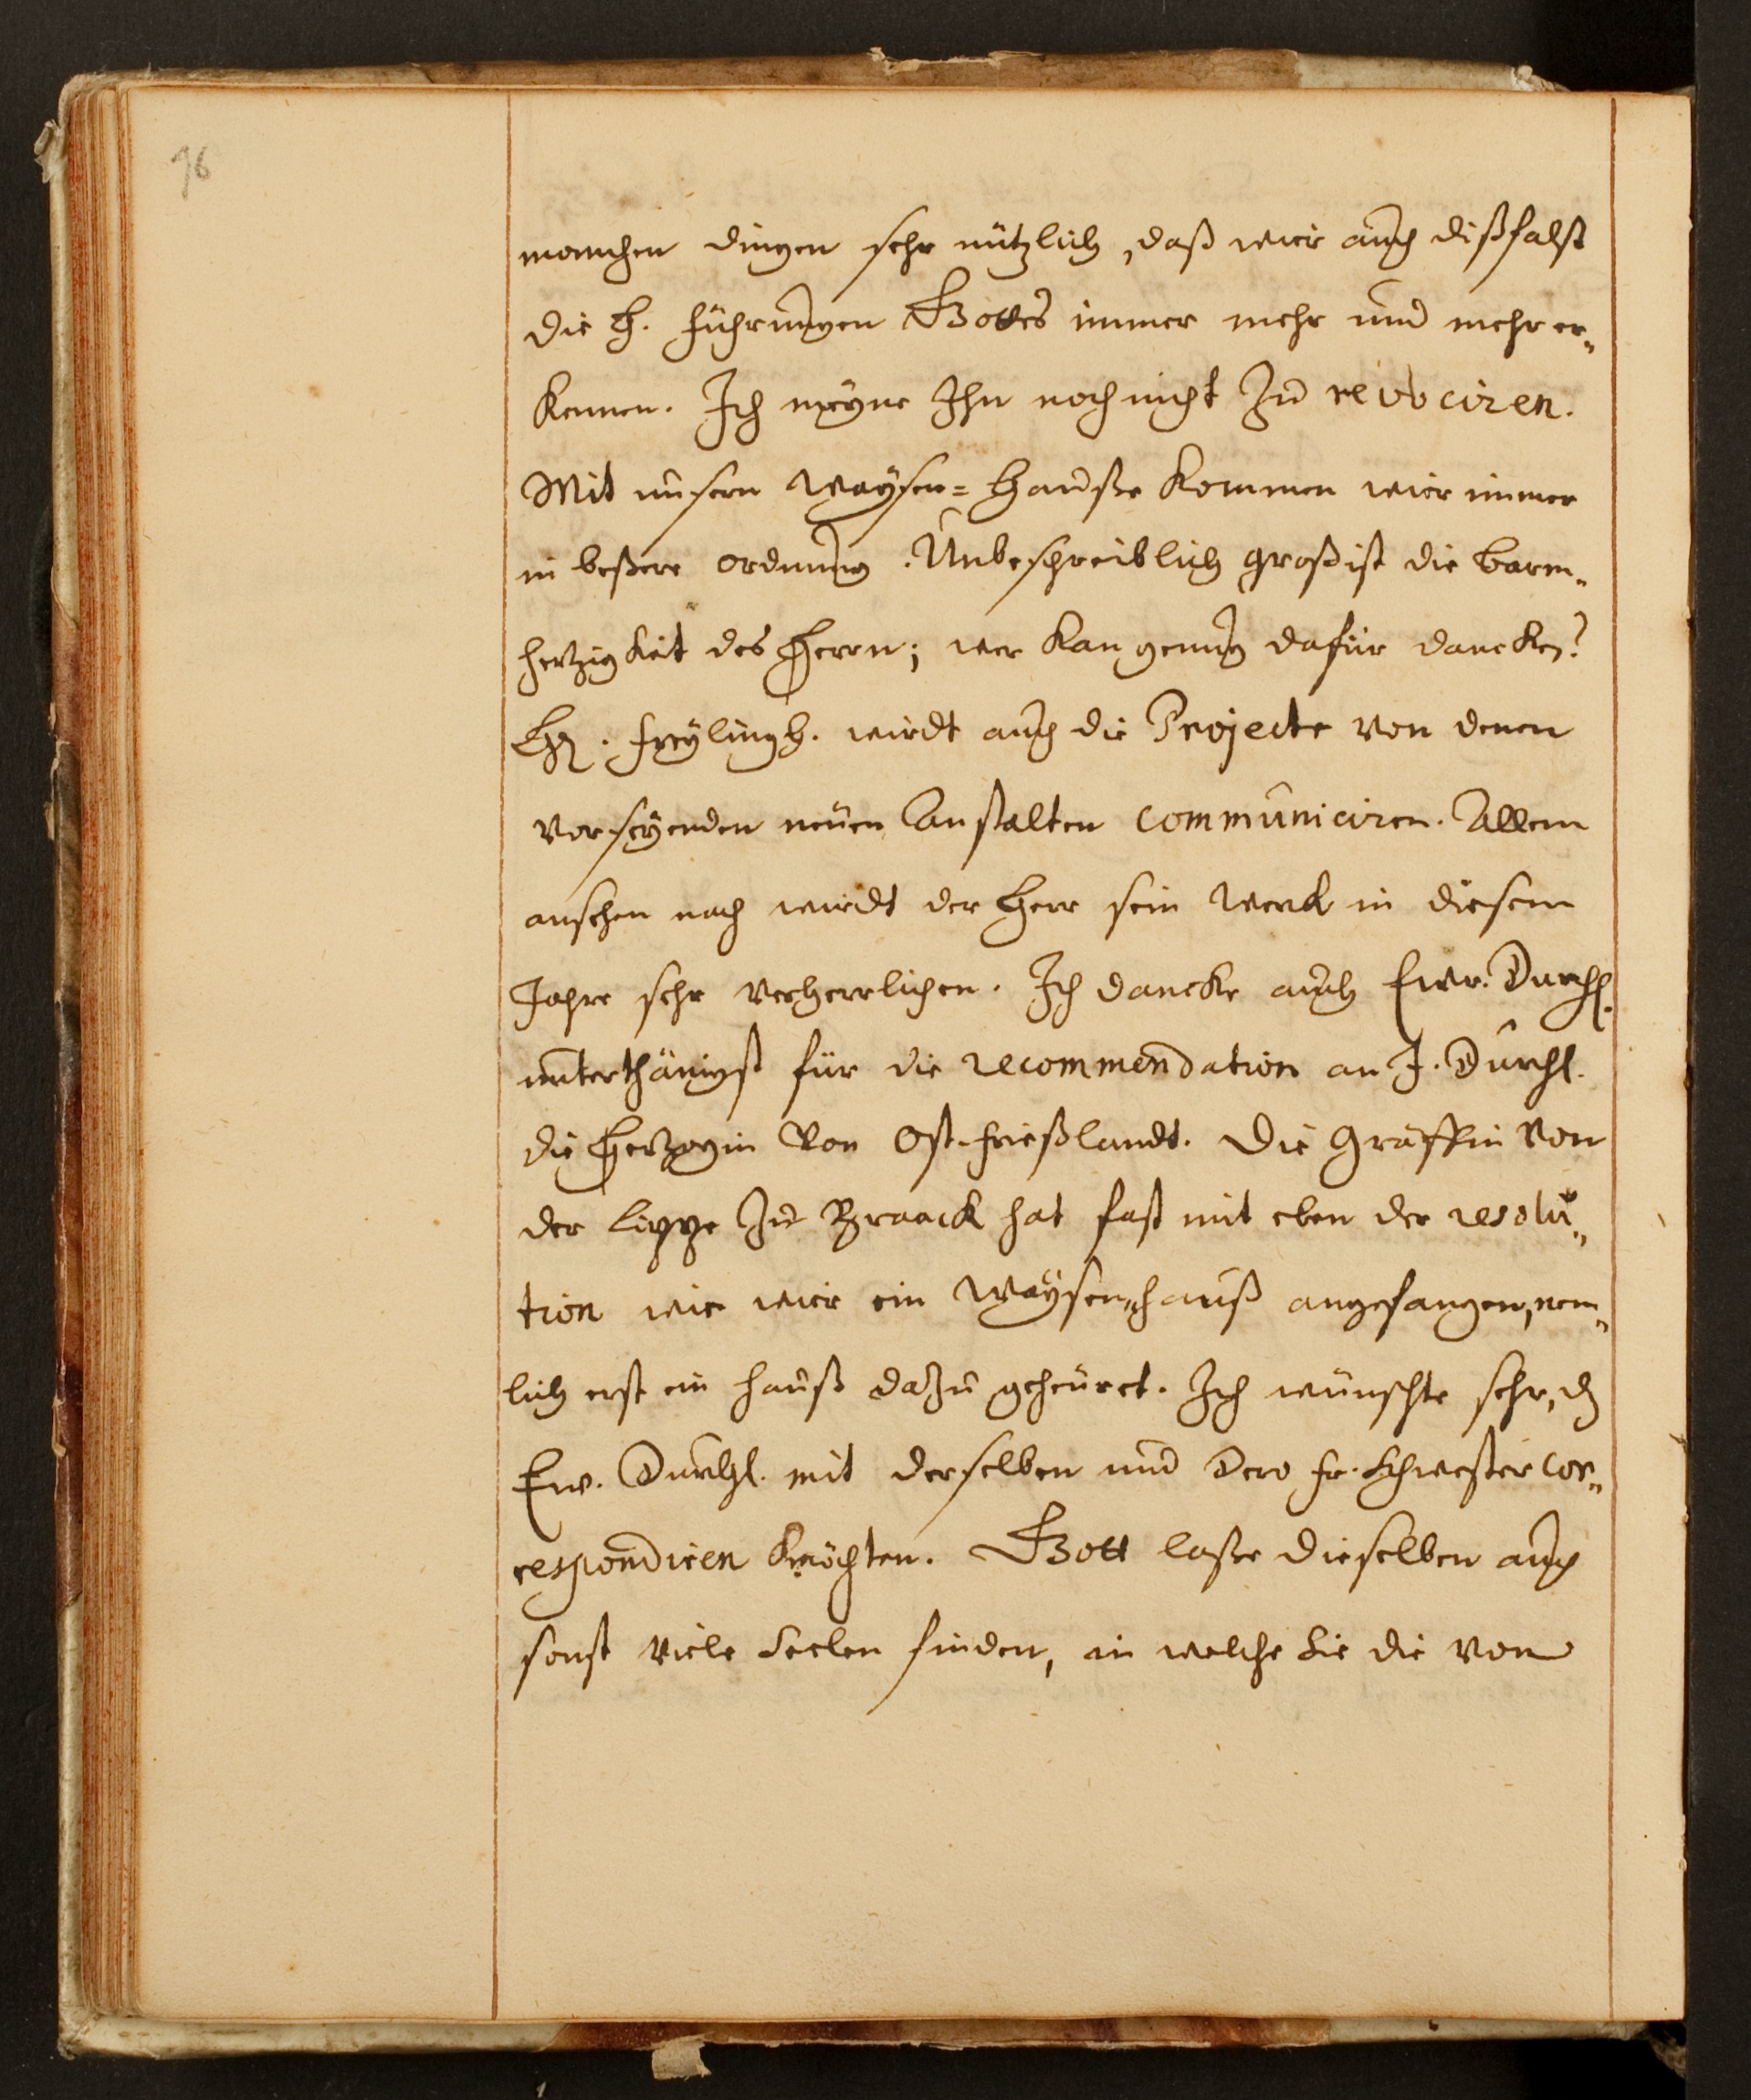 96
manchen dingen sehr nützlich, daß wir auch dißfalß
die H. führungen Gottes immer mehr und mehr er„
kennen. Ich meyne Ihn noch nicht zu revociren.
Mit unsern Waysen=Hauße kommen wir immer
in beßere ordnung. Unbeschreiblich groß ist die barm„
hertzigkeit des Herrn; wer kan genug dafür dancken?
H. Freylingh. wirdt auch die Projecte von denen
vorseyenden neuen anstalten communiciren. Allem
ansehen nach wirdt der Herr sein Werck in diesem
Jahre sehr verherrlichen. Ich dancke auch Ewr. Durchl.
unterthänigst für die recommendation an I. Durchl.
die Hertzogin von Ost-frießlandt. Die Gräffin von
der Lippe zu Braack hat fast mit eben der resolu„
tion wie wir ein Waysen„hauß angefangen, nem„
lich erst ein hauß dazu geheüret. Ich wünschte sehr, dz
Ew. Durchl. mit derselben und dero fr. Schwester cor„
respondiren möchten. Gott laße dieselben auch
sonst viele Seelen finden, in welche Sie die von